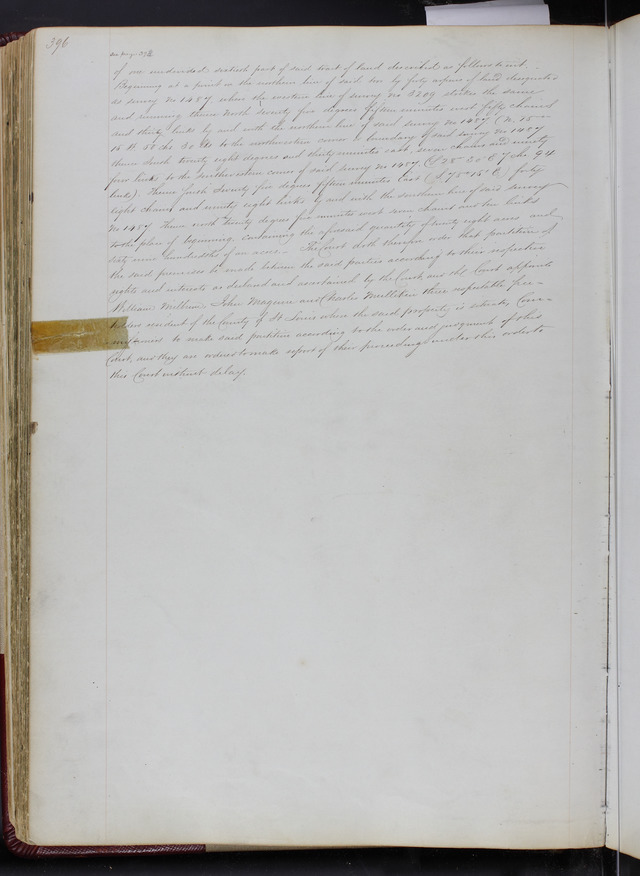 396
See page 393
of one undivided sixtieth part of said tract of land described as follows to wit.
Beginning at a point in the northern line of said ten by forty arpens of land designated
as survey no 1457 where the western line of survey no 3209 strikes the same
and running thence North Seventy five degrees fifteen minutes west fifty chains
and thirty links by and with the northern line of said survey no 1457 (N. 75°
15 W 50 chs 30 lks to the northwestern corner &c boundary of said survey no 1457
thence South twenty eight degrees and thirty minutes east, seven chains and ninety
four links to the Southwestern corner of said survey no 1457 (S 28° 30' E 7 chs 94
links). Thence South Seventy five degrees fifteen minutes East (S 75° 15' E) forty
eight chains and ninety eight links by and with the southern line of said survey
no 1457 Thence north Twenty degrees five minutes west some chains and two links
to the place of beginning, containing the aforesaid quantity of thirty eight acres and
sixty nine hundredths of an acre. The Court doth therefore order that partition of
the said premises be made between the said parties according to their respective
rights and interests as declared and ascertained by the Court, and the Court appoints
William Milburn John Maguire and Charles three reputable free-
holders resident of the County of St Louis where the said property is situate, Com-
missioners to make said partition according to the order and judgment of this
Court, and they are ordered to make report of their proceedings under this order to
this Court without delay.